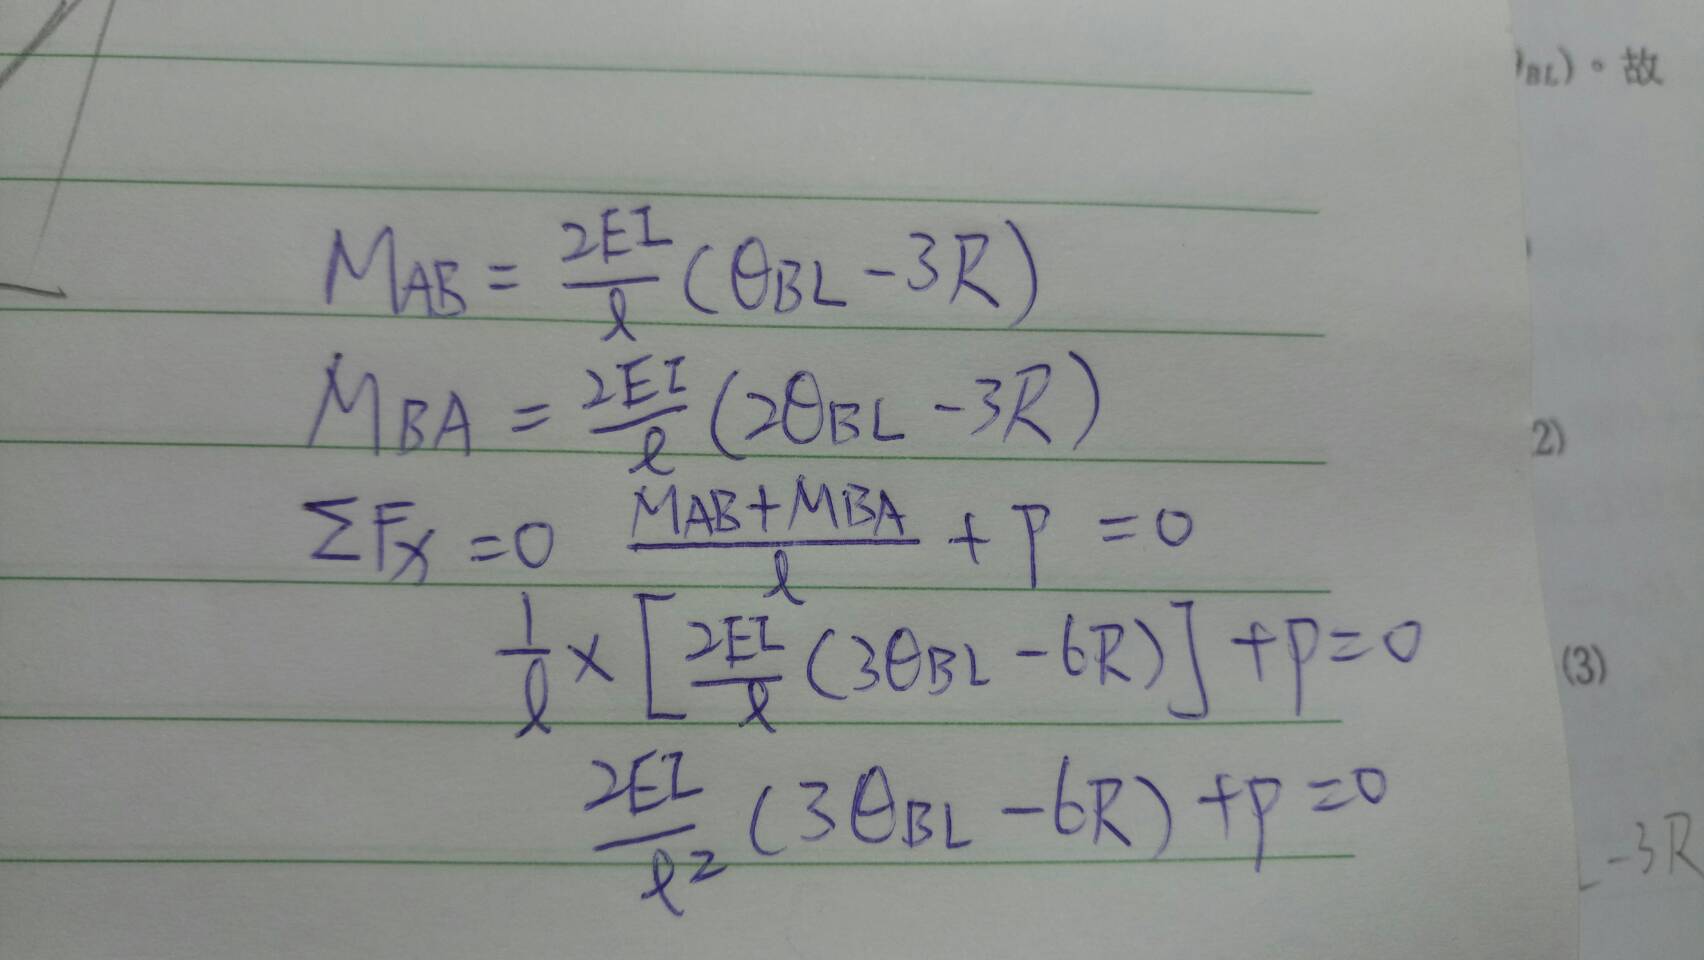 M_AB = 2EI/l (θ_BL - 3R)
M_BA = 2EI/l (2θ_BL - 3R)
ΣFx = 0 (M_AB + M_BA)/l + P = 0
1/l × [2EI/l (3θ_BL - 6R)] + P = 0
2EI/l² (3θ_BL - 6R) + P = 0
BL)。故
2)
(3)
-3R